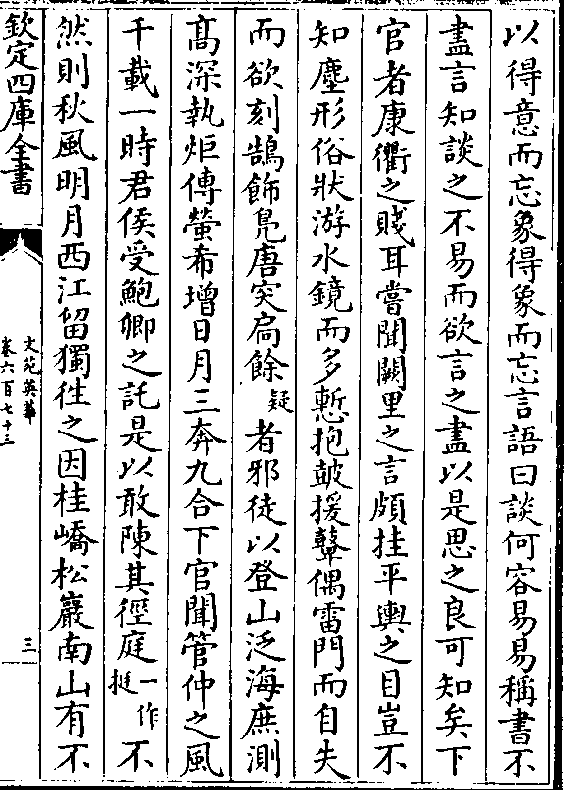 以得意而忘象得象而忘言語曰談何容易易稱書不
盡言知談之不易而欲言之盡以是思之良可知矣下
官者康衢之賤耳嘗聞闕里之言頗挂平輿之目豈不
知塵形俗狀游水鏡而多慙抱皷援鼙偶雷門而自失
而欲刻鵠飾鳧唐突扄餘疑者邪徒以登山泛海庶測
髙深執炬傳螢希增日月三奔九合下官聞管仲之風
千載一時君侯受鮑卿之託是以敢陳其徑庭一作挺不
然則秋風明月西江留獨徃之因桂嶠松巖南山有不
欽定四庫全書
文苑英華
卷六百七十三
三